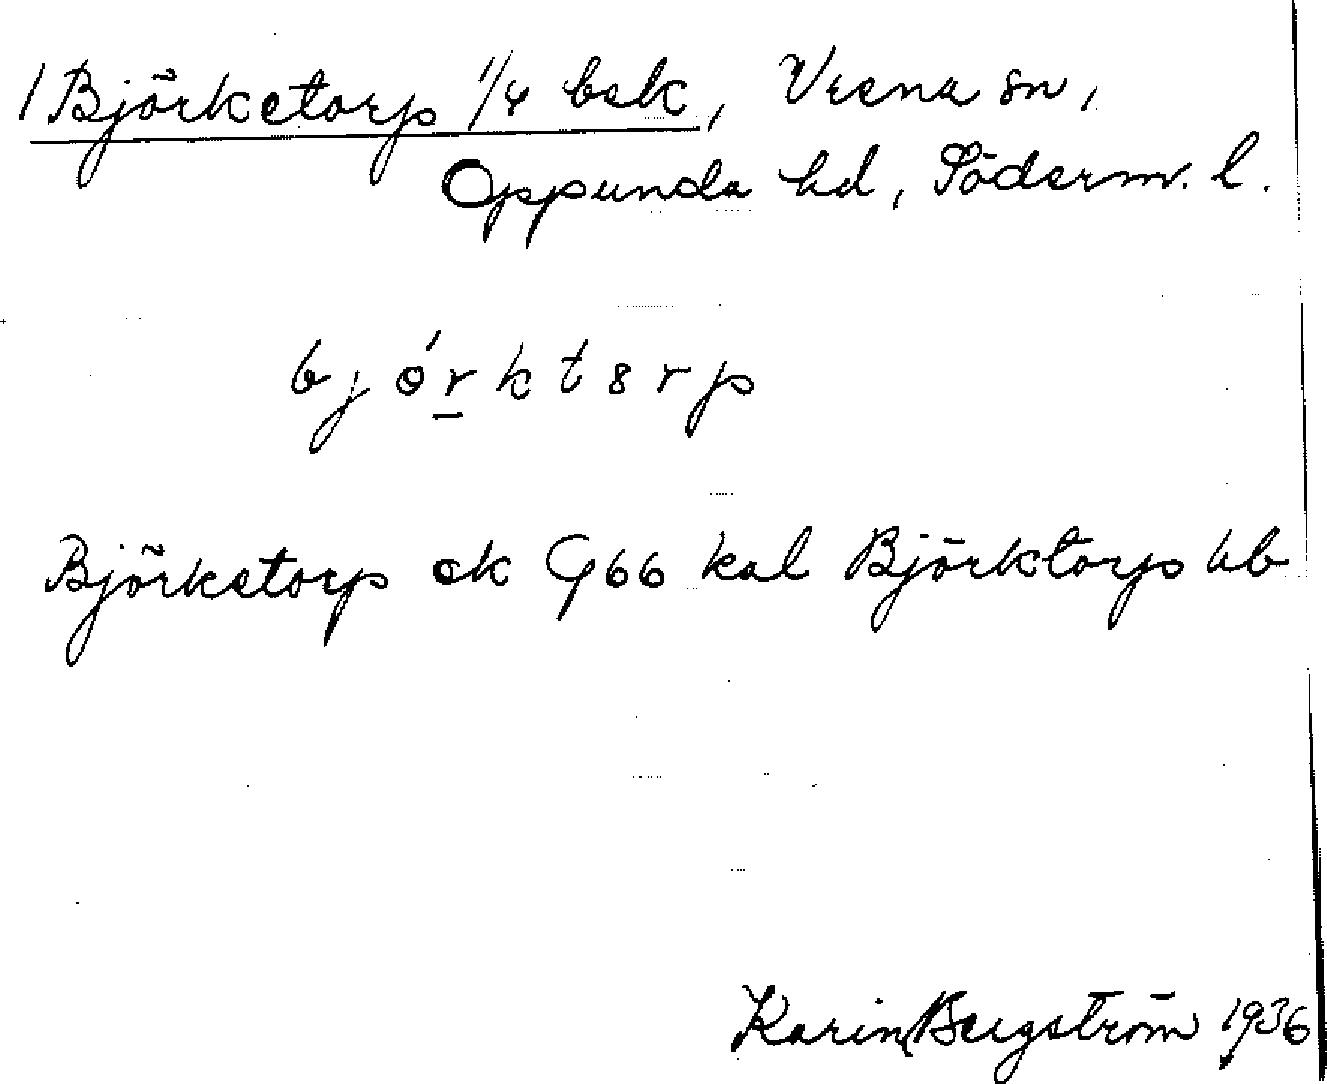 1 Björketorp 1/4 bsk, Vrena sn,
Oppunda hd, Söderm. l.
bjö́rktɜrp
Björketorp ek G66 kal Björktorp hb
Karin Bergström 1936